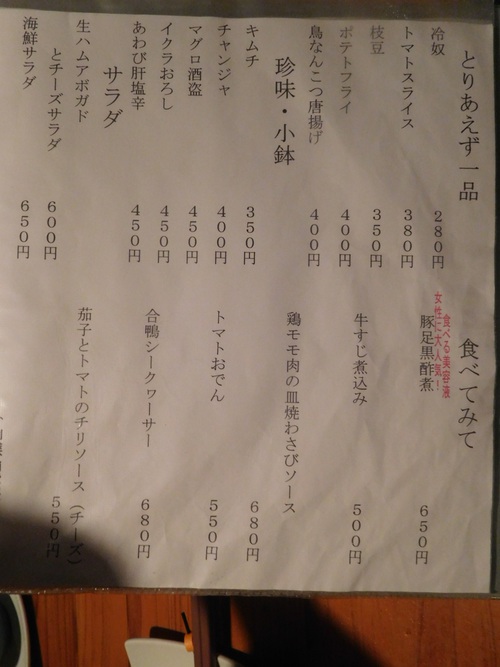 とりあえず一品
冷奴 280円
トマトスライス 380円
枝豆 350円
ポテトフライ 400円
鳥なんこつ唐揚げ 400円
珍味・小鉢
キムチ 350円
チャンジャ 400円
マグロ酒盗 450円
イクラおろし 450円
あわび肝塩辛 450円
サラダ
生ハムアボガド
とチーズサラダ 600円
海鮮サラダ 650円
食べてみて
食べる美容液
女性に大人気!
豚足黒酢煮 650円
牛すじ煮込み 500円
鶏モモ肉の皿焼わさびソース 680円
トマトおでん 550円
合鴨シークヮーサー 680円
茄子とトマトのチリソース(チーズ)
550円